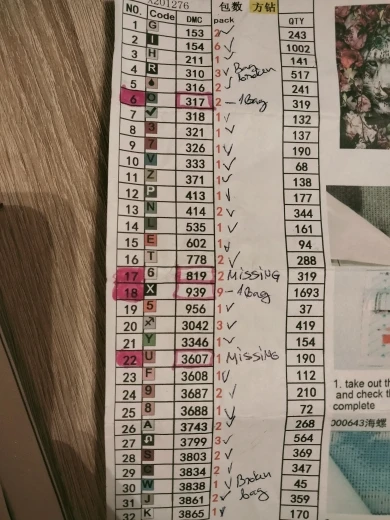 X201276 包数 方钻
NO. Code DMC pack QTY
1 G 153 2✓ 243
2 I 154 6✓ 1002
3 H 211 1✓ 141
4 R 310 3✓ Bag broken 517
5 316 2✓ 241
6 O 317 2 - 1Bag 319
7 ✓ 318 1✓ 132
8 3 321 1✓ 137
9 7 326 1✓ 190
10 V 333 1✓ 68
11 Z 371 1✓ 138
12 P 413 1✓ 177
13 N 414 2✓ 344
14 L 535 1✓ 161
15 E 602 1✓ 94
16 T 778 2✓ 288
17 6 819 2 Missing 319
18 X 939 9 - 1Bag 1693
19 5 956 1✓ 37
20 3042 3✓ 419
21 Y 3346 1✓ 154
22 U 3607 1 Missing 190
23 F 3608 1✓ 112
24 9 3687 2✓ 210
25 8 3688 1✓ 72
26 A 3743 2✓ 268
27 3799 3✓ 564
28 S 3803 2✓ 369
29 C 3834 2✓ 347
30 W 3838 1✓ Broken bag 45
31 J 3861 2✓ 359
32 K 3865 1✓ 170
1. take out th
and check th
complete
000643海螺